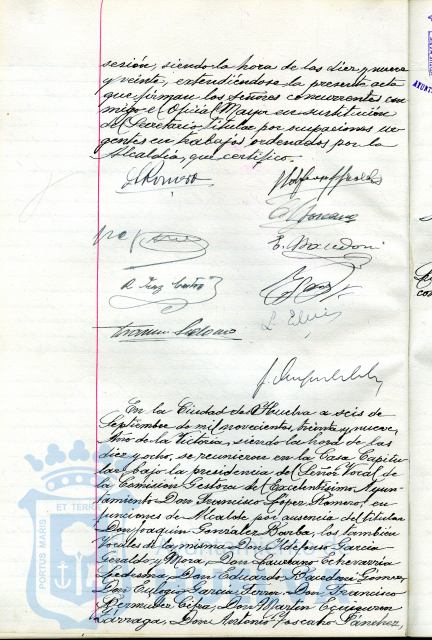 sesión, siendo la hora de las diez y nueve
y veinte, extendiéndose la presente acta
que firman los Señores concurrentes con-
migo el Oficial Mayor en sustitución
del Secretario titular por ocupaciones ur-
gentes en trabajos ordenados por la
Alcaldía, que certifico.
E. Bacedoni
En la Ciudad de Huelva a seis de
Septiembre de mil novecientos treinta y nueve,
Año de la Victoria, siendo la hora de las
diez y ocho, se reunieron en la Casa Capitu-
lar bajo la presidencia del Señor Vocal de
la Comisión Gestora del Excelentísimo Ayun-
tamiento Don Francisco López Romero, en
funciones de Alcalde por ausencia del titular
Don Joaquín González Barba, los también
Vocales de la misma Don Ildefonso García
Geraldo y Mora, Don Laureano Echevarría
Ledesma, Don Eduardo Bacedoni Gómez,
Don Eulogio García Ferrer, Don Francisco
Bermúdez Cepa, Don Martín Eguiguren
Zárraga, Don Antonio Toscano Sánchez,
PORTUS MARIS ET TERR
AYUNT